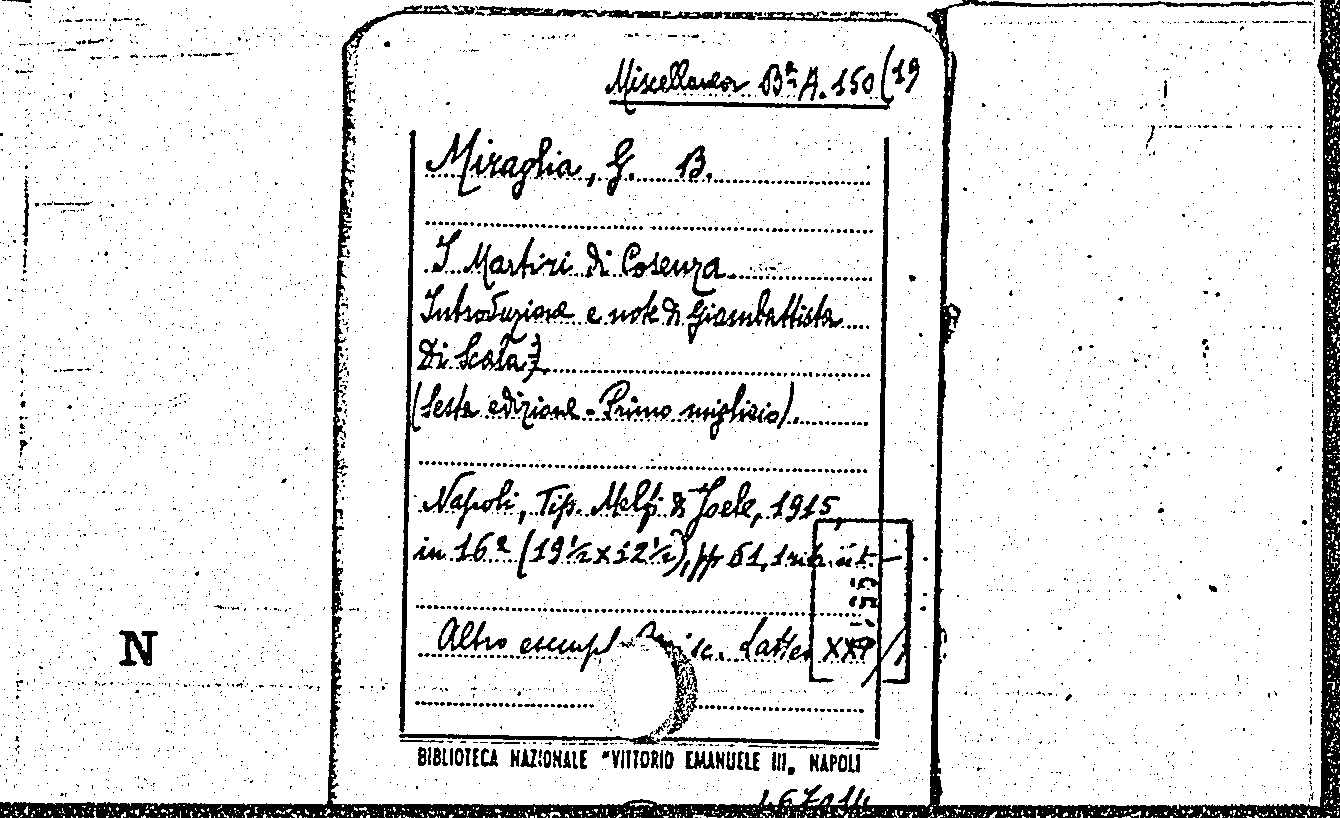 Miscellanea Bª A. 150 (19
Miraglia, G. B.
I Martiri di Cosenza
Introduzione e note di Giambattista
Di Scala
(Sesta edizione - Primo migliaio).
Napoli, Tip. Melfi & Joele, 1915,
in 16º (19½ x 12½), pp 61, 1
Altro esempl
N
BIBLIOTECA NAZIONALE "VITTORIO EMANUELE III„ NAPOLI